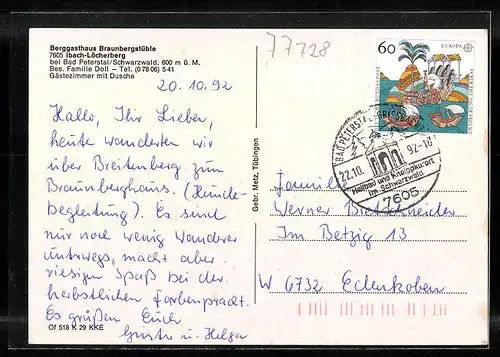 Berggasthaus Braunbergstüble
7605 Ibach-Löcherberg
bei Bad Peterstal/Schwarzwald, 600 m ü. M.
Bes. Familie Doll – Tel. (0 78 06) 5 41
Gästezimmer mit Dusche
20.10.92
Hallo, Ihr Lieben,
heute wanderten wir
über Breitenberg zum
Braunberghaus. (Hunde-
begleitung). Es sind
nur noch wenig Wanderer
unterwegs, macht aber
riesigen Spaß bei der
herbstlichen Farbenpracht.
Es grüßen Euch
u. Helga
Of 518 K 29 KKE
Gebr. Metz, Tübingen
77728
60
EUROPA
BAD PETERSTAL-GRIESBACH
22.10. 92-16
Heilbad und Kneippkurort
im Schwarzwald
7605
Familie
Werner
Im Betzig 13
W 6732 Edenkoben